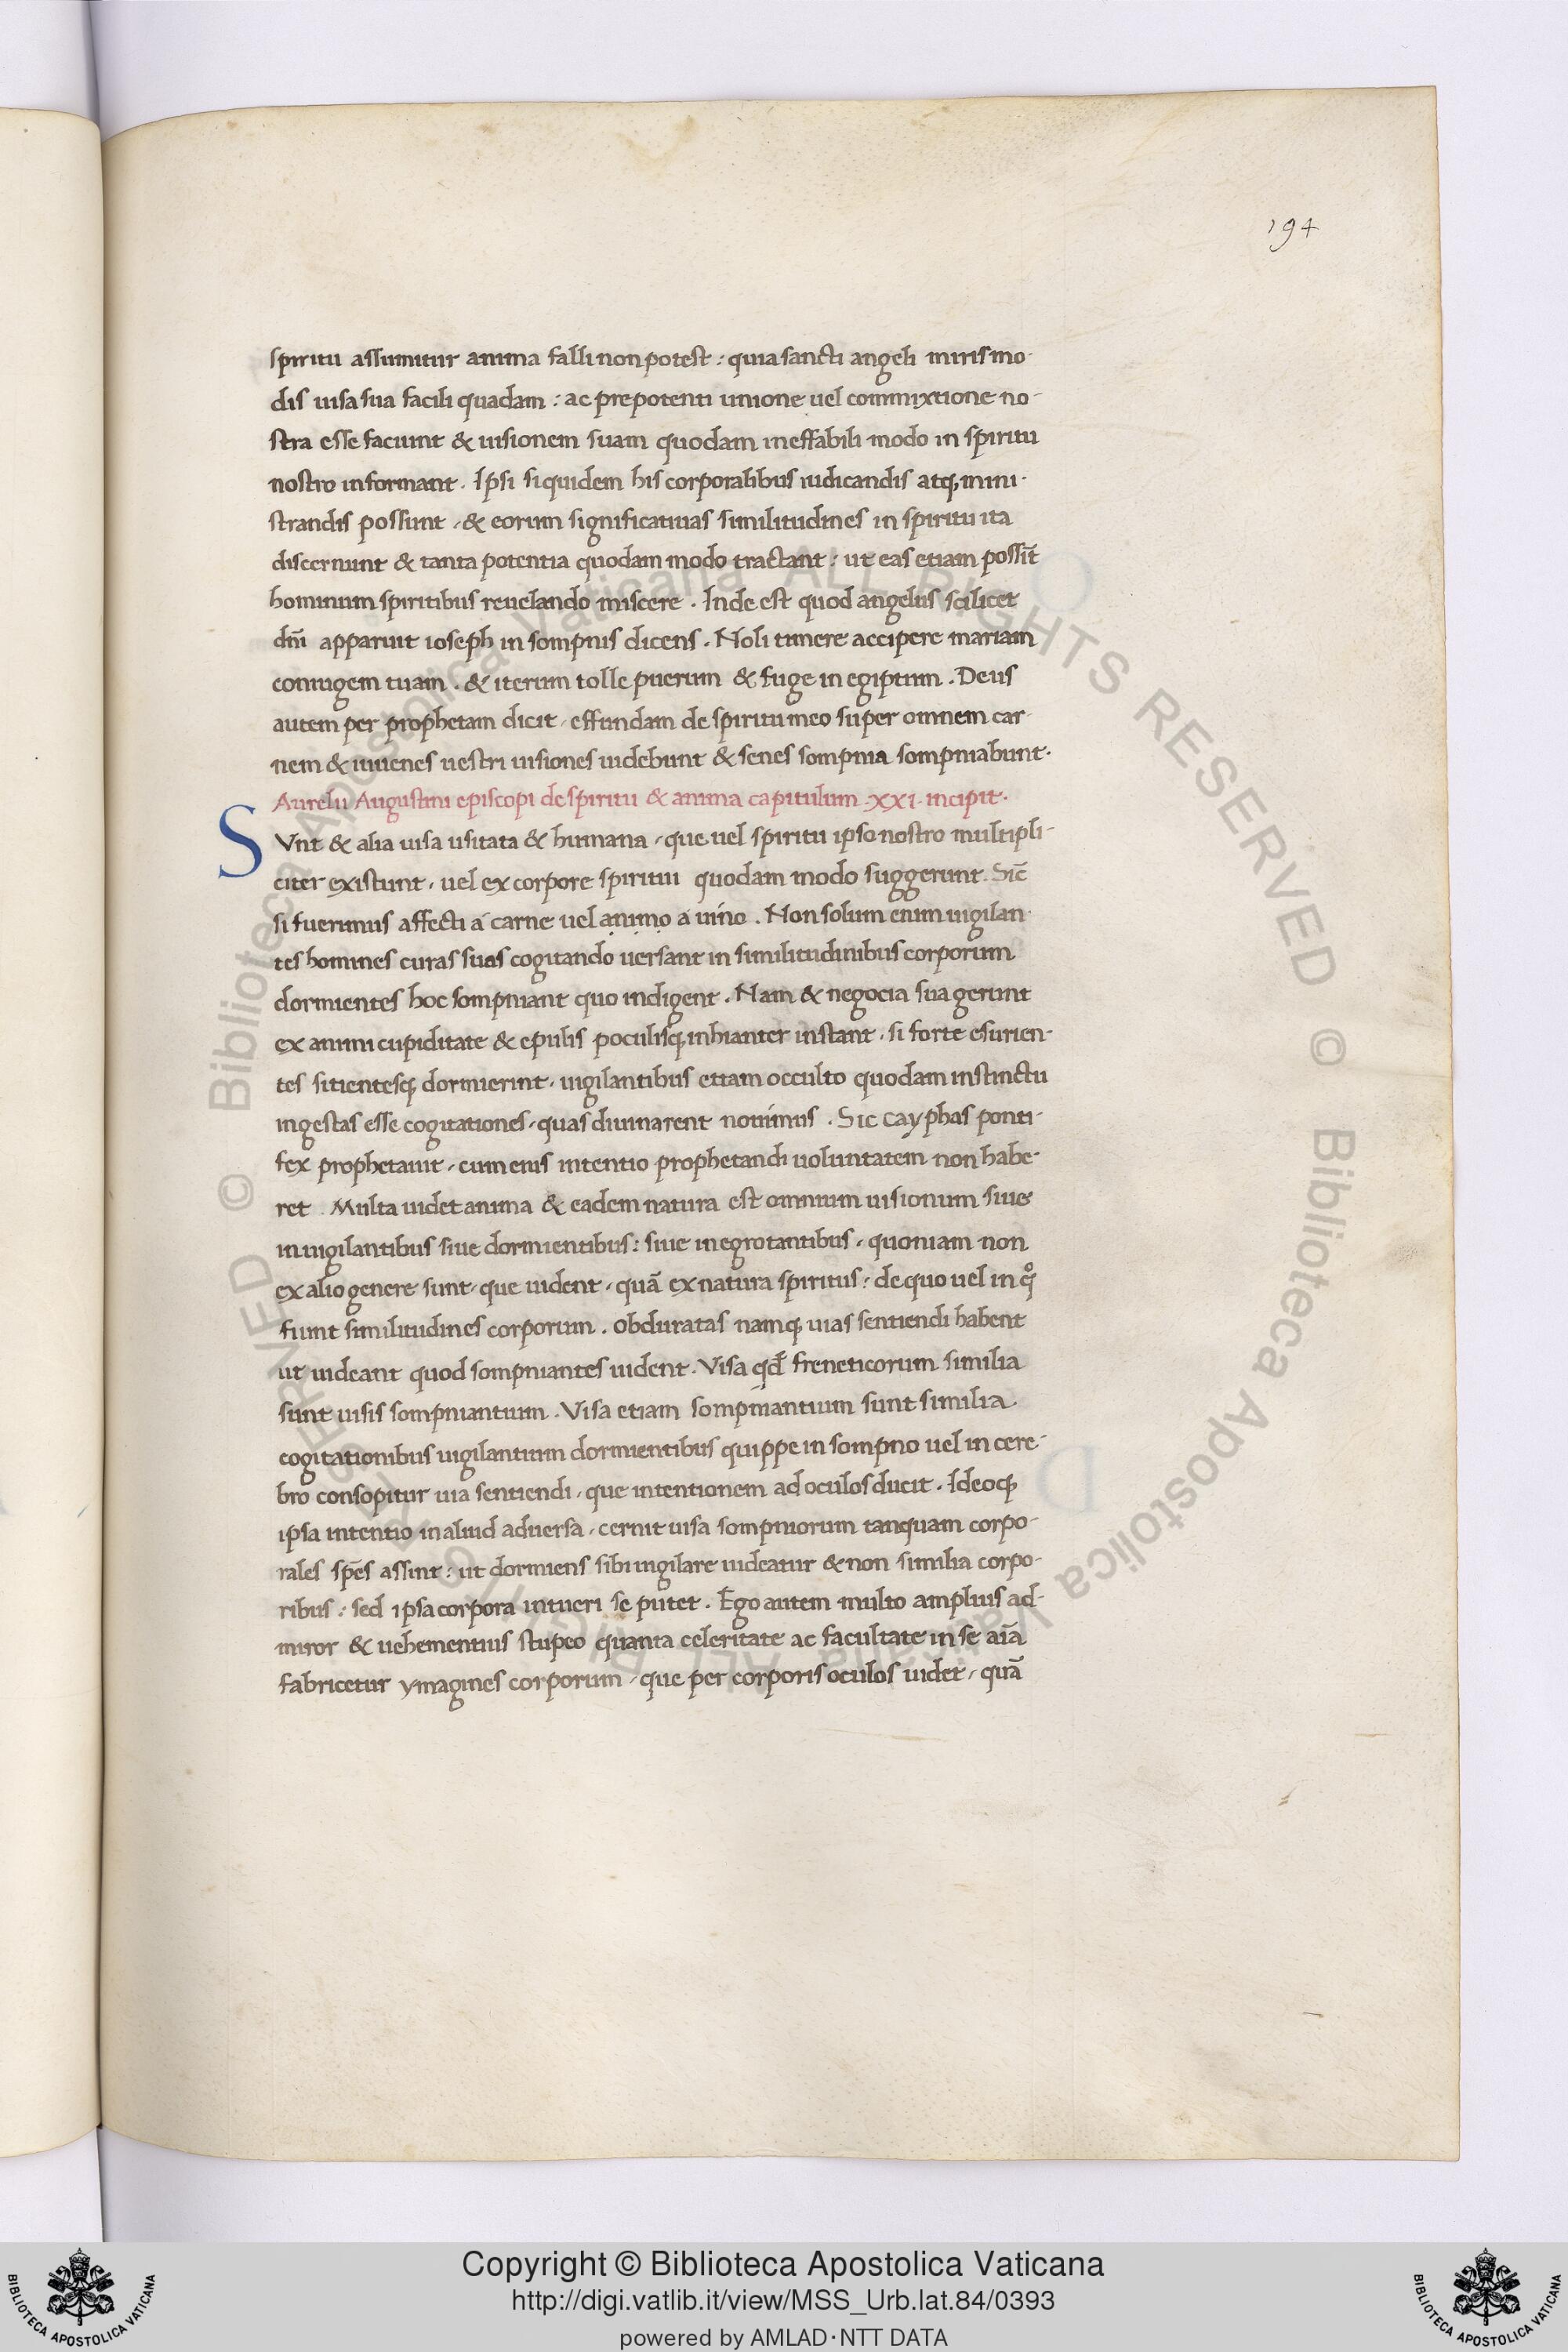 194
spiritu assumitur anima falli non potest : quia sancti angeli miris mo-
dis uisa sua facili quadam : ac prepotenti unione uel commixtione no-
stra esse faciunt & uisionem suam quodam ineffabili modo in spiritu
nostro informant . Ipsi siquidem his corporalibus iudicandis atq; mini-
strandis possunt , & eorum significatiuas similitudines in spiritu ita
discernunt & tanta potentia quodam modo tractant : ut eas etiam possīt
hominum spiritibus reuelando miscere . Inde est quod angelus scilicet
dn̄i apparuit ioseph in sompnis dicens . Noli timere accipere mariam
coniugem tuam . & iterum tolle puerum & fuge in egiptum . Deus
autem per prophetam dicit , effundam de spiritu meo super omnem car-
nem & iuuenes uestri uisiones uidebunt & senes sompnia sompniabunt .
Aurelii Augustini episcopi de spiritu & anima capitulum . XXI . incipit .
SVnt & alia uisa usitata & humana , que uel spiritu ipso nostro multipli-
citer existunt , uel ex corpore spiritui quodam modo suggerunt . Sic̄
si fuerimus affecti a carne uel animo a uino . Non solum enim uigilan-
tes homines curas suas cogitando uersant in similitudinibus corporum
dormientes hoc sompniant quo indigent . Nam & negocia sua gerunt
ex animi cupiditate & epulis poculisq; inhianter instant , si forte esurien-
tes sitientesq; dormierint , uigilantibus etiam occulto quodam instinctu
ingestas esse cogitationes , quas diuinarent nouimus . Sic cayphas ponti-
fex prophetauit , cum eius intentio prophetandi uoluntatem non habe-
ret . Multa uidet anima & eadem natura est omnium uisionum siue
in uigilantibus siue dormientibus : siue in egrotantibus , quoniam non
ex alio genere sunt , que uident , quā ex natura spiritus : de quo uel in qͦ
fiunt similitudines corporum . obduratas namq; uias sentiendi habent
ut uideant quod sompniantes uident . Visa qd̄ freneticorum similia
sunt uisis sompniantium . Visa etiam sompniantium sunt similia
cogitationibus uigilantium dormientibus quippe in sompno uel in cere-
bro consopitur uia sentiendi , que intentionem ad oculos ducit . Ideoq;
ipsa intentio in aliud aduersa , cernit uisa sompniorum tanquam corpo-
rales sp̄es assint : ut dormiens sibi uigilare uideatur & non similia corpo-
ribus : sed ipsa corpora intueri se putet . Ego autem multo amplius ad-
miror & uehementius stupeo quanta celeritate ac facultate in se aīa
fabricetur ymagines corporum , que per corporis oculos uidet , quā
Copyright © Biblioteca Apostolica Vaticana
http://digi.vatlib.it/view/MSS_Urb.lat.84/0393
powered by AMLAD·NTT DATA
BIBLIOTECA APOSTOLICA VATICANA
BIBLIOTECA APOSTOLICA VATICANA
© Biblioteca Apostolica Vaticana ALL RIGHTS RESERVED © Biblioteca Apostolica Vaticana ALL RIGHTS RESERVED